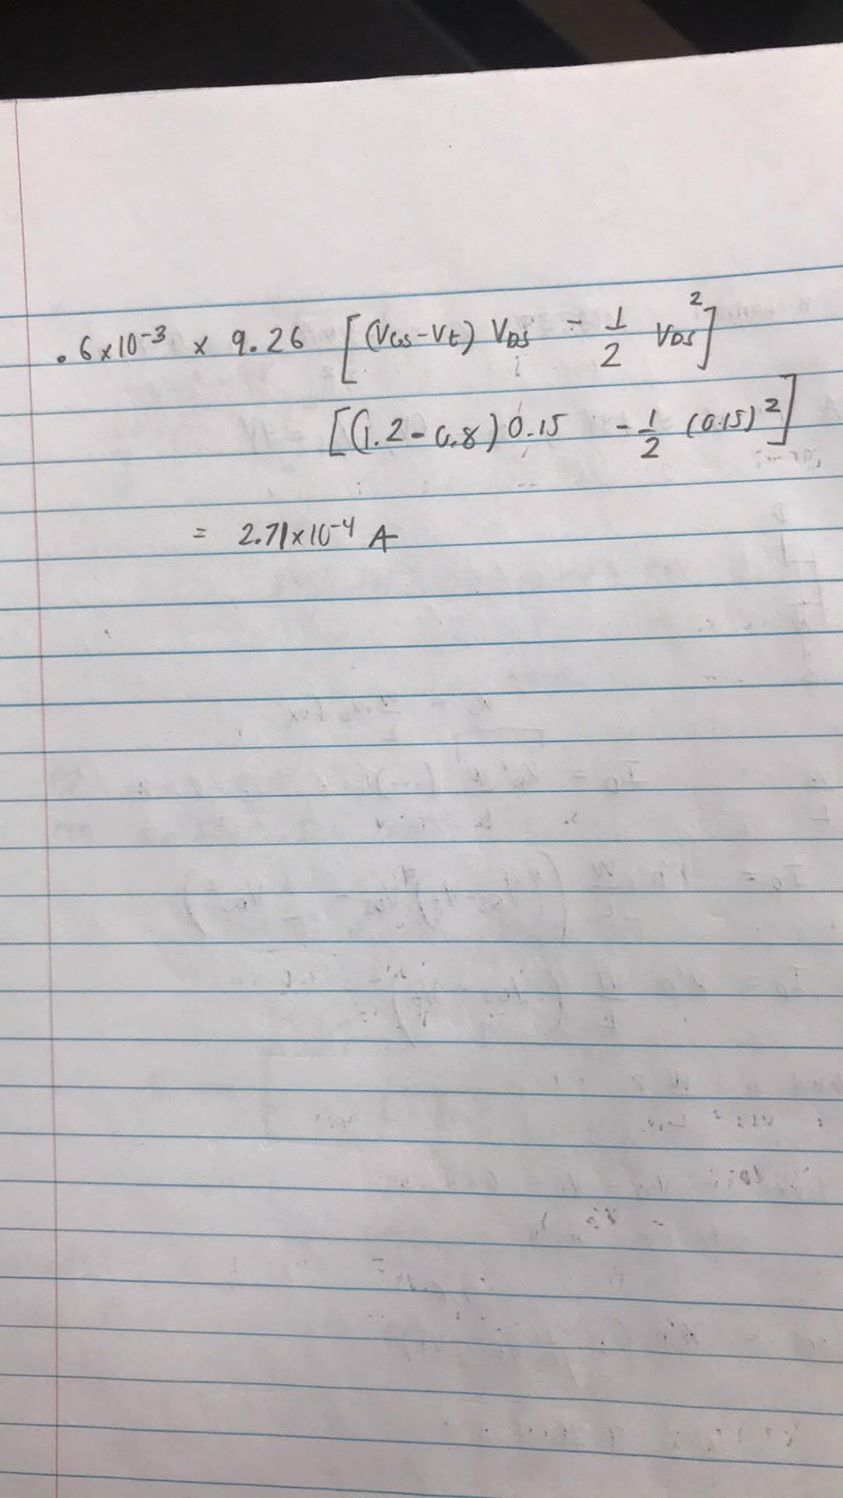 .6x10⁻³ x 9.26 [(VGS-Vt) VDS - 1/2 VDS²]
[(1.2-0.8) 0.15 - 1/2 (0.15)²]
= 2.71x10⁻⁴ A